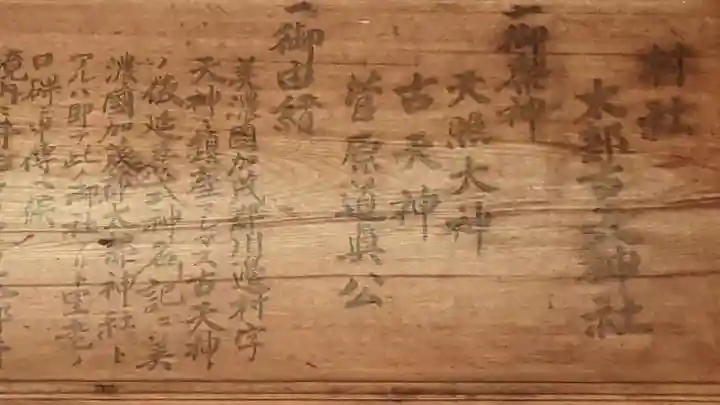 村社
太部古天神社
一御祭神
天照大神
古天神
菅原道真公
一御由緒
美濃國加茂郡川邊村字
天神ニ鎮座シマス古天神ハ
後延喜式神名記ニ美
濃國加茂郡太部神社ト
アルハ即チ此ノ御社ナリト里老ノ
口碑ニ傳
境内